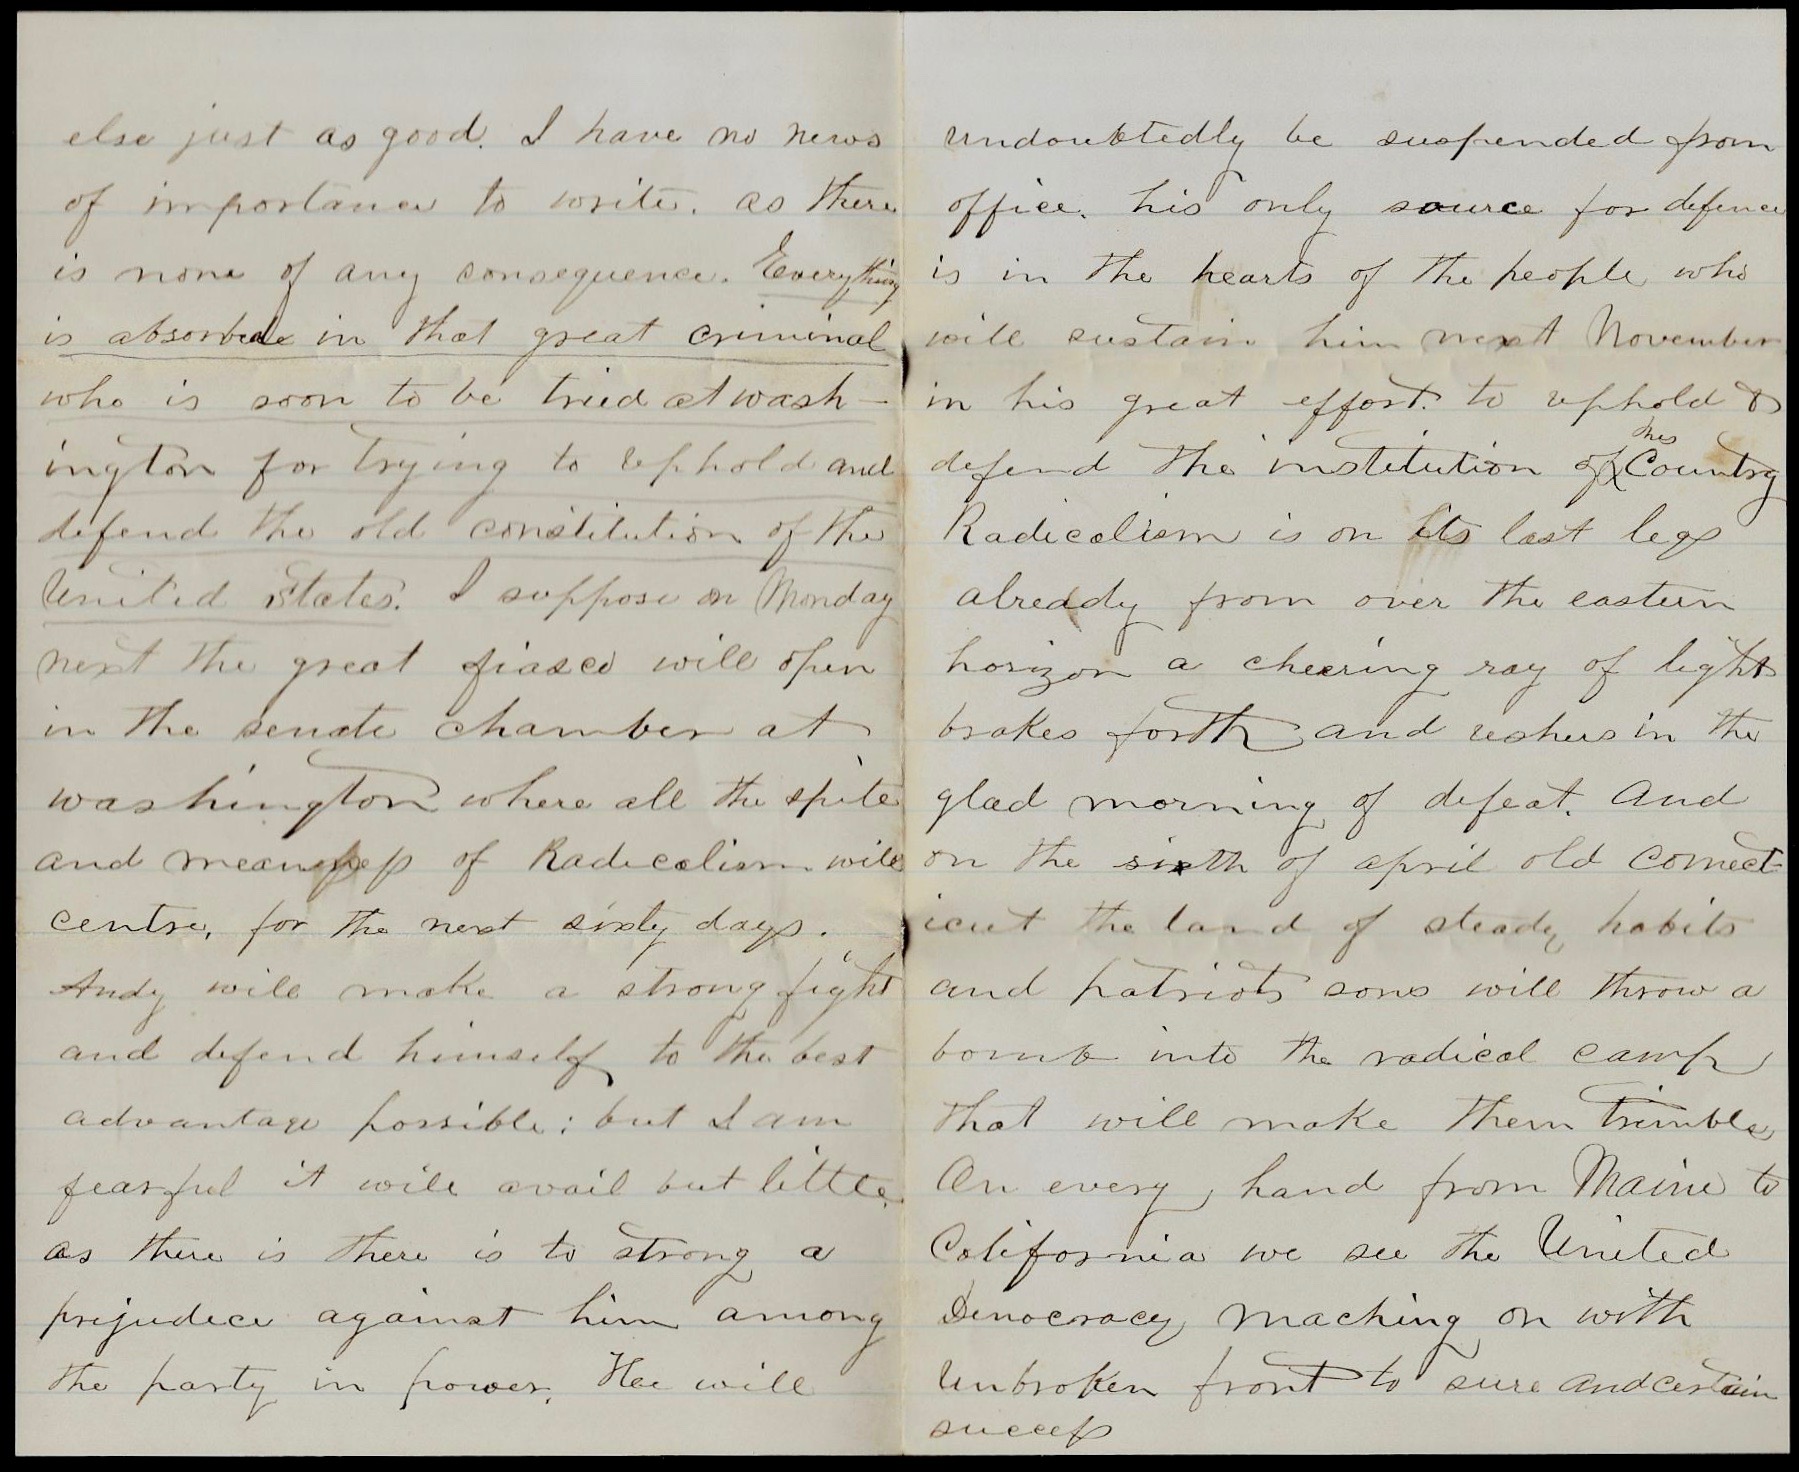 else just as good. I have no news
of importance to write. as there
is none of any consequence. Everything
is absorbed in that great criminal
who is soon to be tried at wash-
ington for trying to uphold and
defend the old constitution of the
United States. I suppose on Monday
next the great fiasco will open
in the senate chamber at
washington where all the spite
and meanness of Radicalism will
centre, for the next sixty days.
Andy will make a strong fight
and defend himself to the best
advantage possible; but I am
fearful it will avail but little.
as there is there is to strong a
prejudice against him among
the party in power. Hee will
undoubtedly be suspended from
office. his only source for defence
is in the hearts of the people who
will sustain him next November
in his great effort. to uphold &
defend the institution of his Country
Radicalism is on its last legs
already from over the eastern
horizon a cheering ray of light
brakes forth and ushers in the
glad morning of defeat. And
on the sixth of april old Connect-
icut the land of steady habits
and patriots sons will throw a
bomb into the radical camp
that will make them trimble
On every hand from Maine to
California we see the United
Democracy maching on with
unbroken front to sure and certain
success